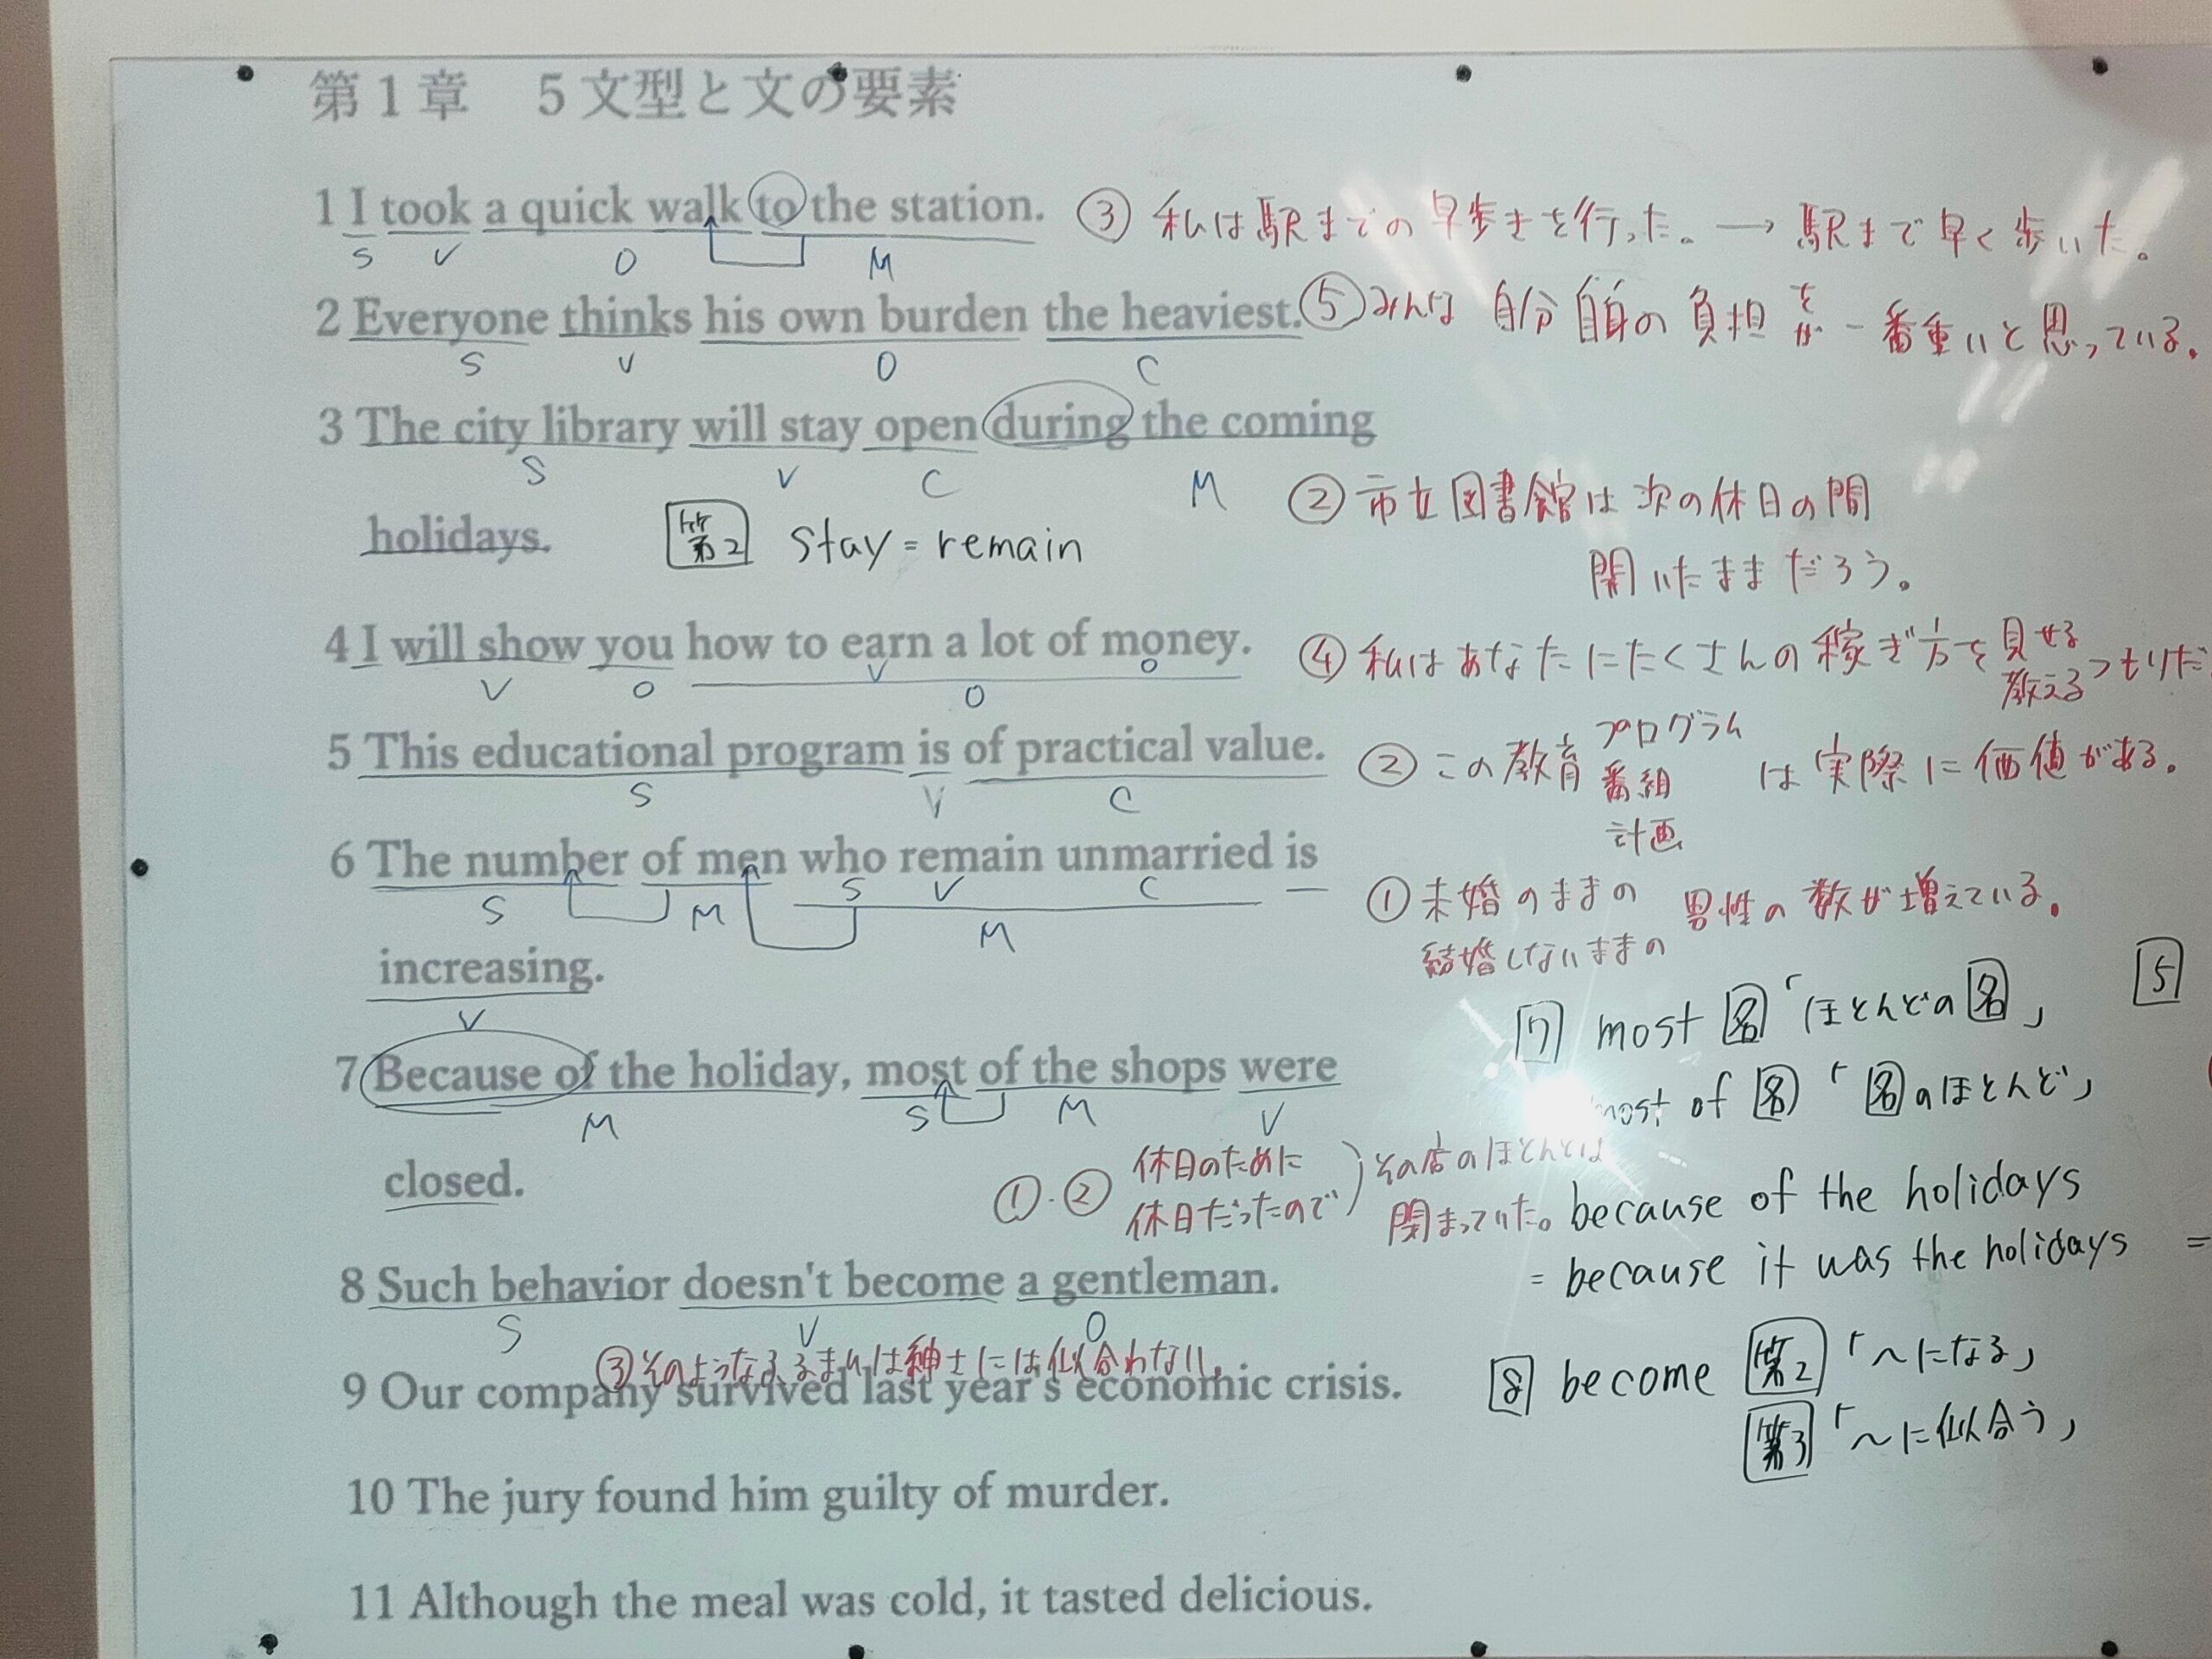 第1章　5文型と文の要素
1 I took a quick walk to the station. ③ 私は駅までの早歩きを行った。→ 駅まで早く歩いた。
S V O M
2 Everyone thinks his own burden the heaviest. ⑤ みんな 自分自身の負担 を 一番重いと思っている。
が
S V O C
3 The city library will stay open during the coming
S V C M
② 市立図書館は次の休日の間
holidays. 第2 stay = remain
開いたままだろう。
4 I will show you how to earn a lot of money. ④ 私はあなたにたくさんの稼ぎ方を見せる つもりだ
教える
V O V O
O
5 This educational program is of practical value. ② この教育 プログラム は実際に価値がある。
番組
計画
S V C
6 The number of men who remain unmarried is
S M S V C
M
① 未婚のままの 男性の数が増えている。
結婚しないままの
increasing.
V
7 most 名 「ほとんどの名」 5
7 Because of the holiday, most of the shops were
most of 名 「名のほとんど」
M S M V
closed.
①・② 休日のために その店のほとんどは
休日だったので 閉まっていた。
because of the holidays
= because it was the holidays =
8 Such behavior doesn't become a gentleman.
S V O
③ そのようなふるまいは紳士には似合わない。
8 become 第2 「〜になる」
第3 「〜に似合う」
9 Our company survived last year's economic crisis.
10 The jury found him guilty of murder.
11 Although the meal was cold, it tasted delicious.